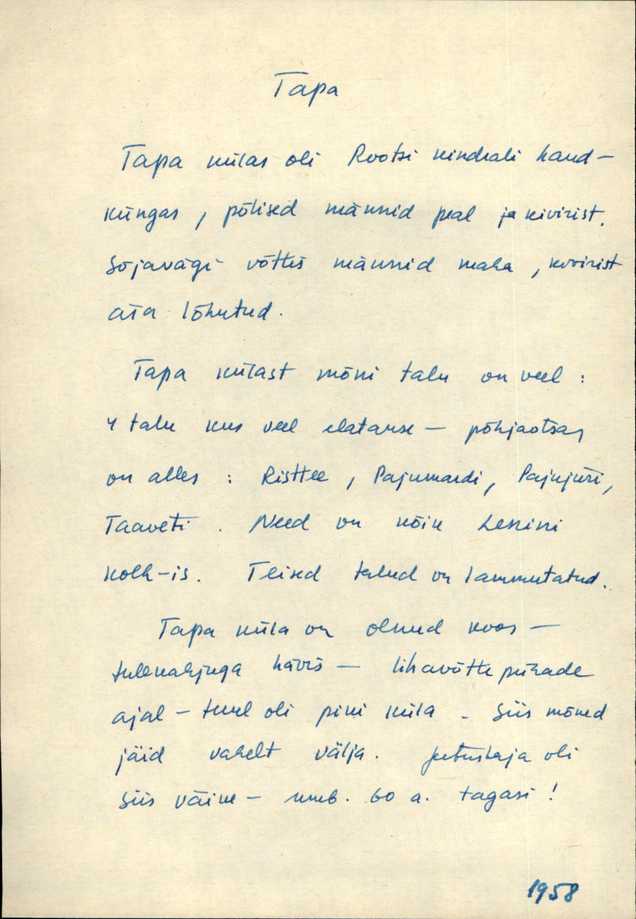 Tapa
Tapa külas oli Rootsi kindrali haud-
küngas, põlised männid peal ja kivirist.
Sõjavägi võttis männid maha, kivirist
ära lõhutud.
Tapa külast mõni talu on veel:
4 talu kus veel elatakse - põhjaotsas
on alles: Risttee, Pajumardi, Pajujüri,
Taaveti. Need on kõik Lenini
kolh-is. Teised talud on lammutatud.
Tapa küla on olnud koos -
tulekahjuga hävis - lihavõtte pühade
ajal - tuul oli piki küla. Siis mõned
jäid vahelt välja. Jutustaja oli
siis väike - umb. 60 a. tagasi!
1958